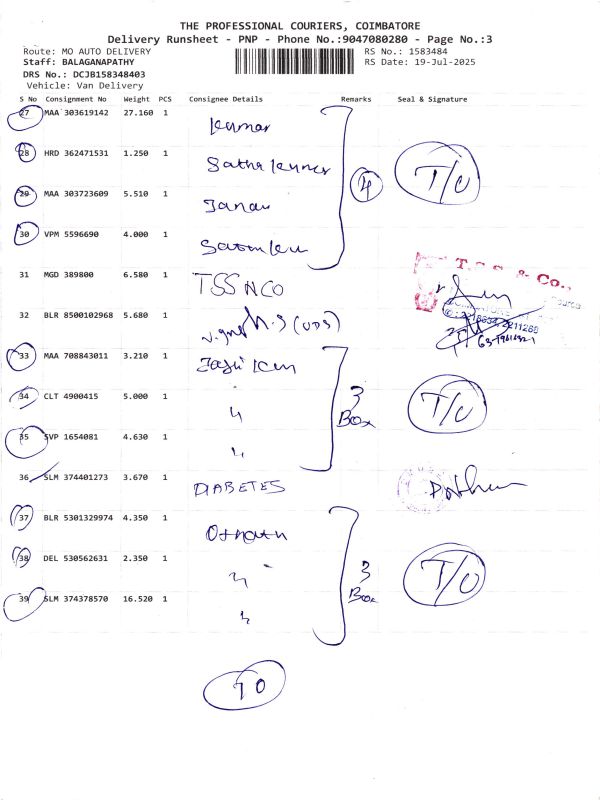 THE PROFESSIONAL COURIERS, COIMBATORE
Delivery Runsheet - PNP - Phone No.:9047080280 - Page No.:3
Route: MO AUTO DELIVERY RS No.: 1583484
Staff: BALAGANAPATHY RS Date: 19-Jul-2025
DRS No.: DCJB158348403
Vehicle: Van Delivery
S No Consignment No Weight PCS Consignee Details Remarks Seal & Signature
27 MAA 303619142 27.160 1 Kumar
28 HRD 362471531 1.250 1 4 T/O
29 MAA 303723609 5.510 1
30 VPM 5596690 4.000 1
31 MGD 389800 6.580 1 TSS NCO & Co.,
32 BLR 8500102968 5.680 1 (UDS)
33 MAA 708843011 3.210 1
34 CLT 4900415 5.000 1 " 3 Box T/O
35 SVP 1654081 4.630 1 "
36 SLM 374401273 3.670 1 DIABETES
37 BLR 5301329974 4.350 1
38 DEL 530562631 2.350 1 " 3 Box T/O
39 SLM 374378570 16.520 1 "
TO